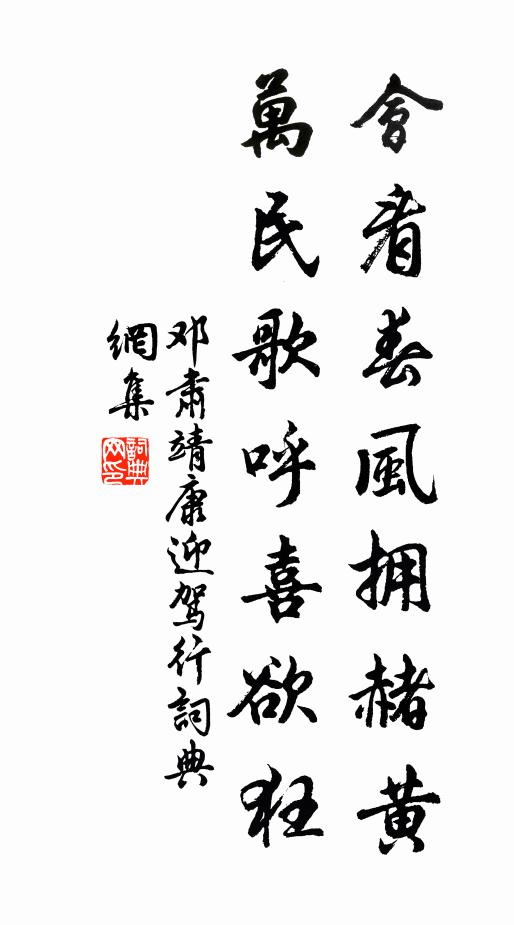 會看春風拥赭黃
萬民歌呼喜欲狂
邓肅靖康迎駕行詞典
網集
詞典网印